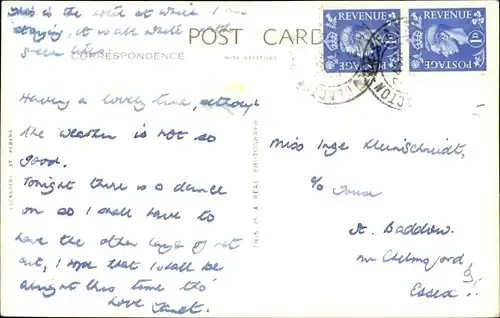 This is the hotel at which I am
staying, it is all white with
green tiles.
POST CARD
CORRESPONDENCE
WITH GREETINGS
Having a lovely time, although
the weather is not so
good.
Tonight there is a dance
on so I shall have to
have the other layer of net
out, I hope that I shall be
alright this time tho'
Love Janet.
THIS IS A REAL PHOTOGRAPH
ST. ALBANS
POSTAGE REVENUE
1D
POSTAGE REVENUE
1D
CLACTON
Miss Inge Kleinschmidt,
c/o
Gt. Baddow.
nr Chelmsford,
Essex.